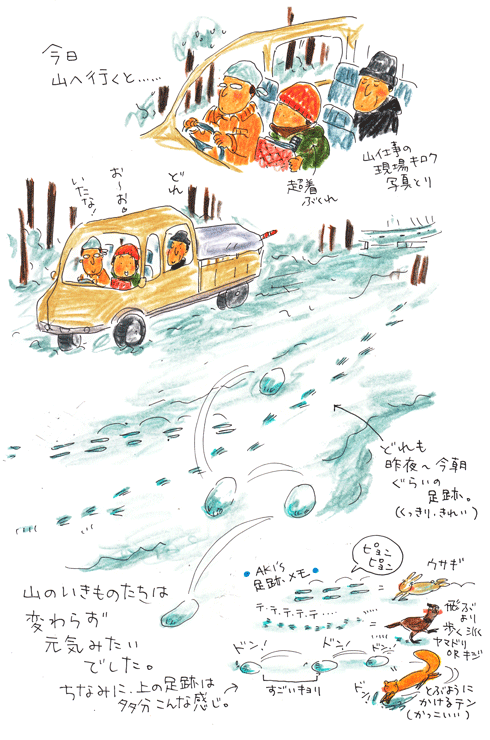 今日
山へ行くと……
山仕事の
現場キロク
写真とり
超着
ぶくれ
どれ
お〜お。
いたな!
どれも
昨夜〜今朝
ぐらいの
足跡。
(くっきり、きれい)
山のいきものたちは
変わらず
元気みたい
でした。
ちなみに、上の足跡は
多分こんな感じ。
AKI's
足跡メモ
ピョン
ピョン
ウサギ
テ・テ・テ・テ・テ…
=
飛ぶ
より
歩く派
ヤマドリ
OR キジ
ドン!
ドン!
ドン!
すごいキョリ
=
ドン
とぶように
かけるテン
(かっこいい)